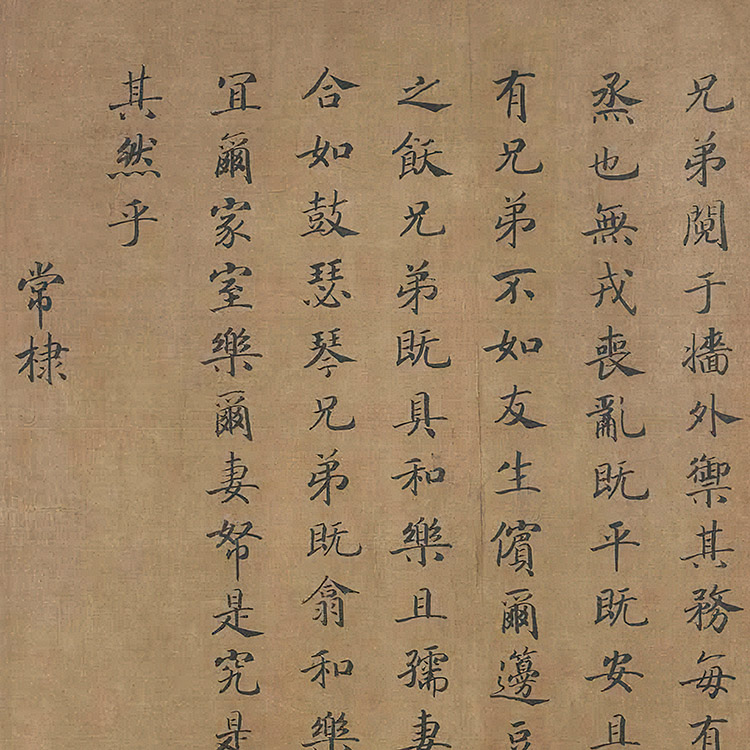 兄弟鬩于牆外禦其務每有
烝也無戎喪亂既平既安且
有兄弟不如友生儐爾籩豆
之飫兄弟既具和樂且孺妻
合如鼓瑟琴兄弟既翕和樂
冝爾家室樂爾妻帑是究是
其然乎
常棣